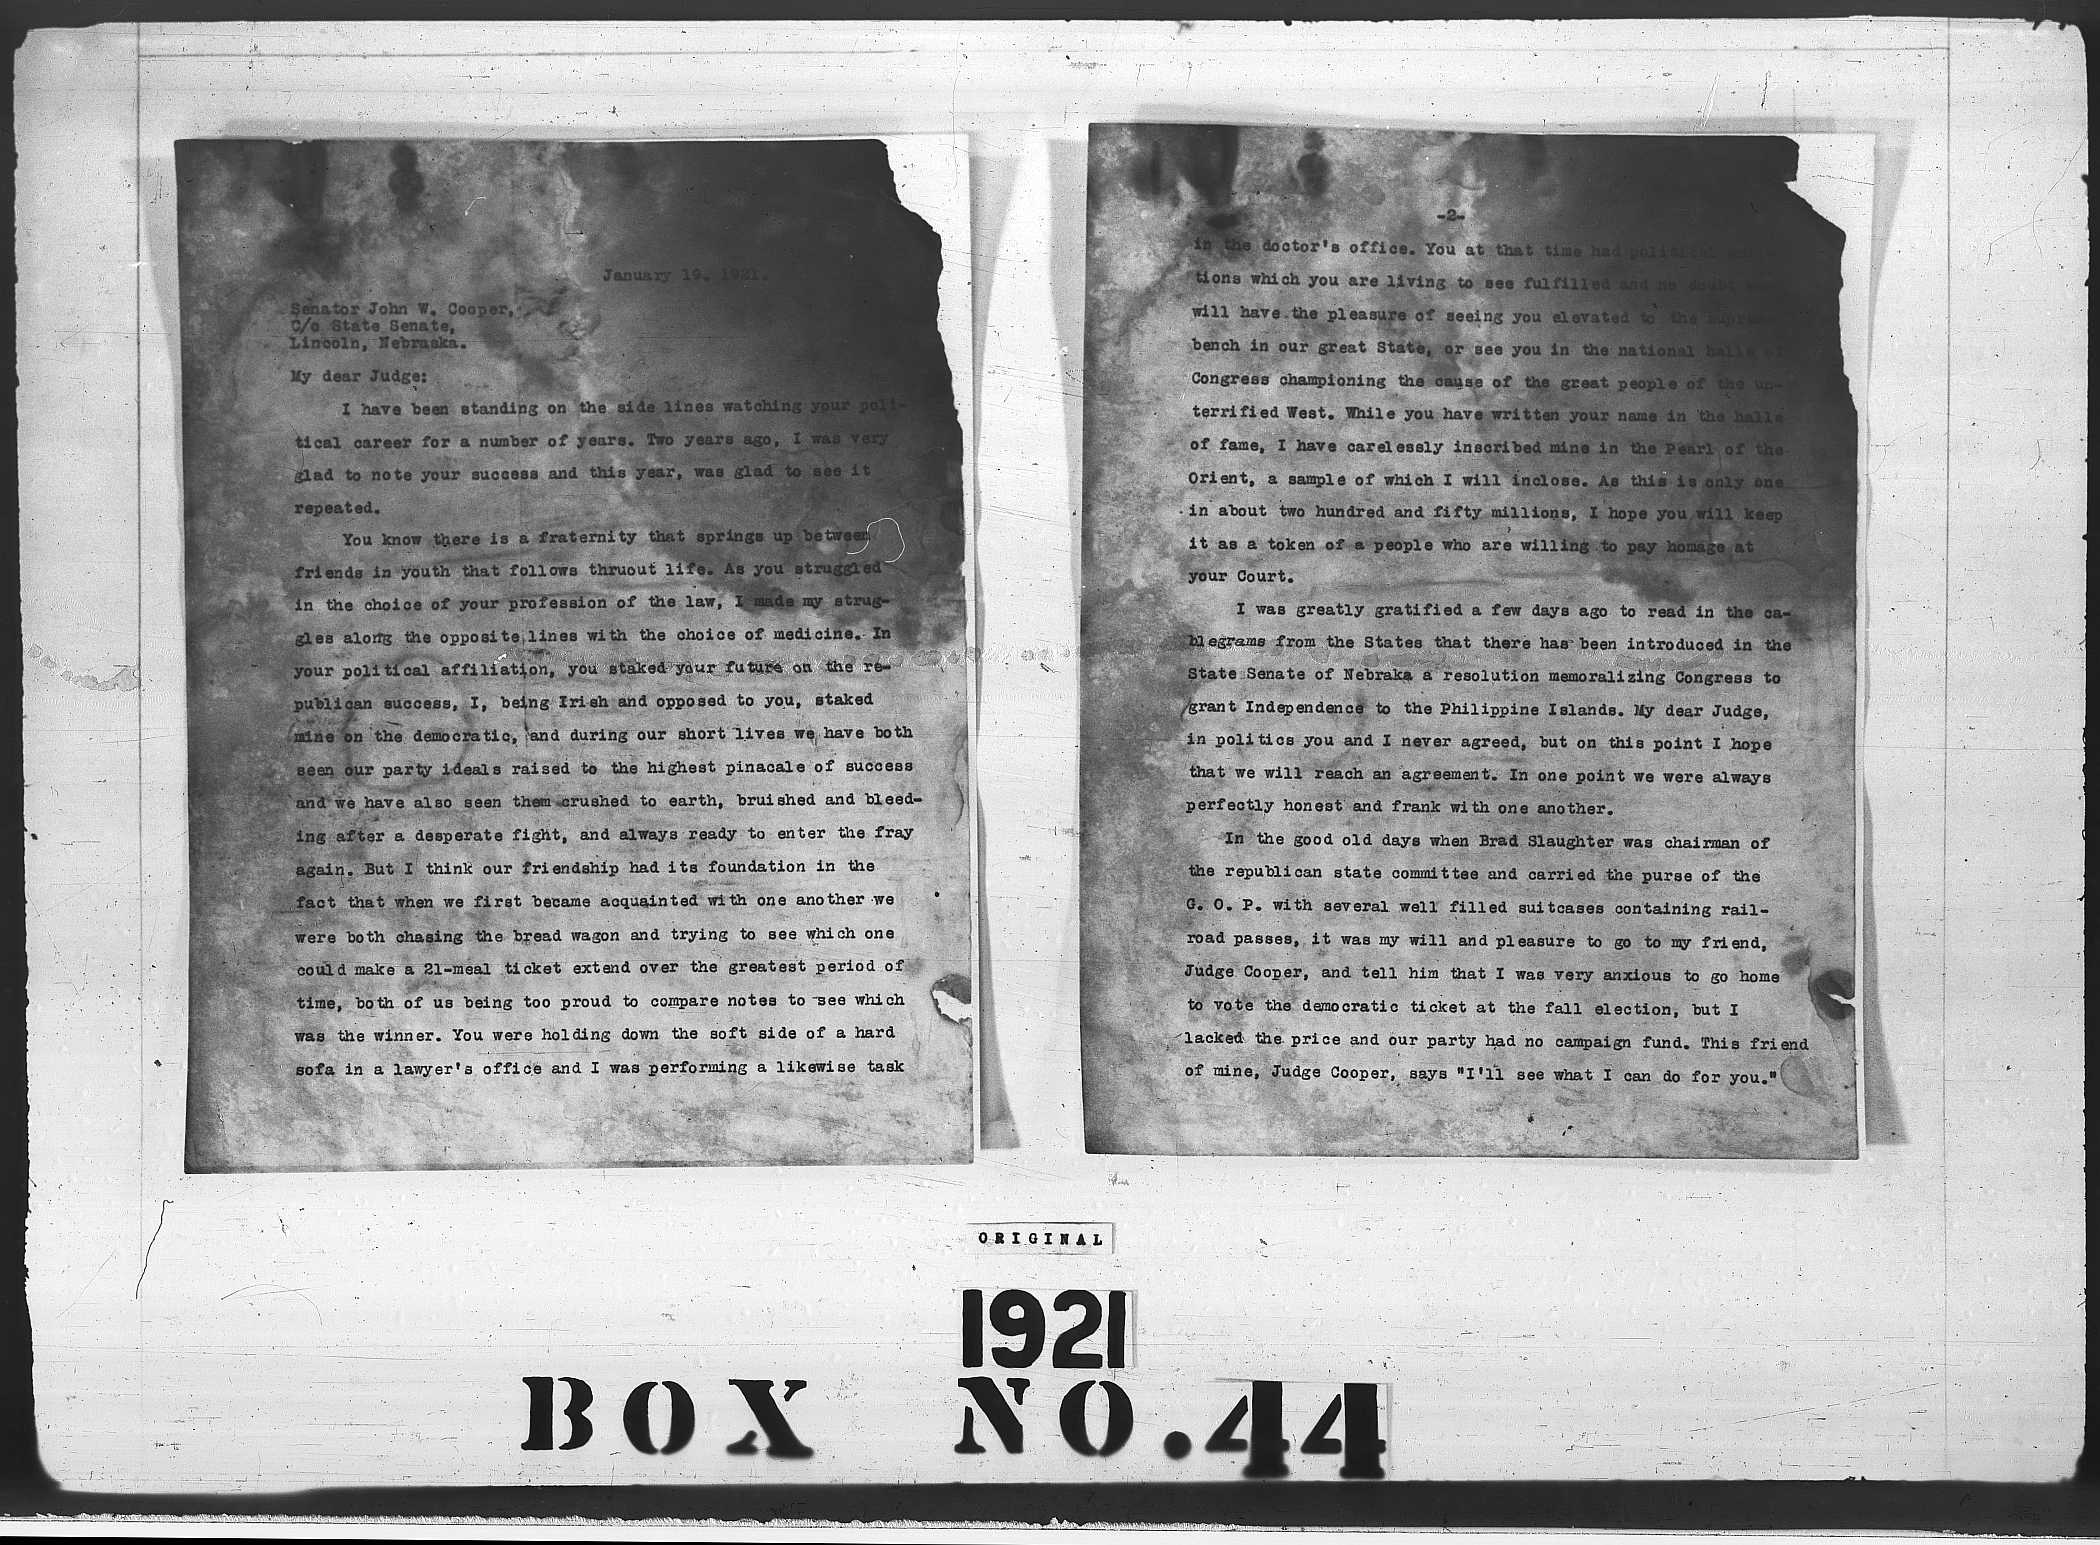 January 19, 1921.
Senator John W. Cooper,
C/o State Senate,
Lincoln, Nebraska.
My dear Judge:
I have been standing on the side lines watching your poli-
tical career for a number of years. Two years ago, I was very
glad to note your success and this year, was glad to see it
repeated.
You know there is a fraternity that springs up between
friends in youth that follows thruout life. As you struggled
in the choice of your profession of the law, I made my strug-
gles along the opposite lines with the choice of medicine. In
your political affiliation, you staked your future on the re-
publican success, I, being Irish and opposed to you, staked
mine on the democratic, and during our short lives we have both
seen our party ideals raised to the highest pinacale of success
and we have also seen them crushed to earth, bruished and bleed-
ing after a desperate fight, and always ready to enter the fray
again. But I think our friendship had its foundation in the
fact that when we first became acquainted with one another we
were both chasing the bread wagon and trying to see which one
could make a 21-meal ticket extend over the greatest period of
time, both of us being too proud to compare notes to see which
was the winner. You were holding down the soft side of a hard
sofa in a lawyer's office and I was performing a likewise task
-2-
in the doctor's office. You at that time had political
tions which you are living to see fulfilled and no doubt
will have the pleasure of seeing you elevated to the supreme
bench in our great State, or see you in the national halls of
Congress championing the cause of the great people of the un-
terrified West. While you have written your name in the halls
of fame, I have carelessly inscribed mine in the Pearl of the
Orient, a sample of which I will inclose. As this is only one
in about two hundred and fifty millions, I hope you will keep
it as a token of a people who are willing to pay homage at
your Court.
I was greatly gratified a few days ago to read in the ca-
blegrams from the States that there has been introduced in the
State Senate of Nebraka a resolution memoralizing Congress to
grant Independence to the Philippine Islands. My dear Judge,
in politics you and I never agreed, but on this point I hope
that we will reach an agreement. In one point we were always
perfectly honest and frank with one another.
In the good old days when Brad Slaughter was chairman of
the republican state committee and carried the purse of the
G. O. P. with several well filled suitcases containing rail-
road passes, it was my will and pleasure to go to my friend,
Judge Cooper, and tell him that I was very anxious to go home
to vote the democratic ticket at the fall election, but I
lacked the price and our party had no campaign fund. This friend
of mine, Judge Cooper, says "I'll see what I can do for you."
ORIGINAL
1921
BOX NO.44